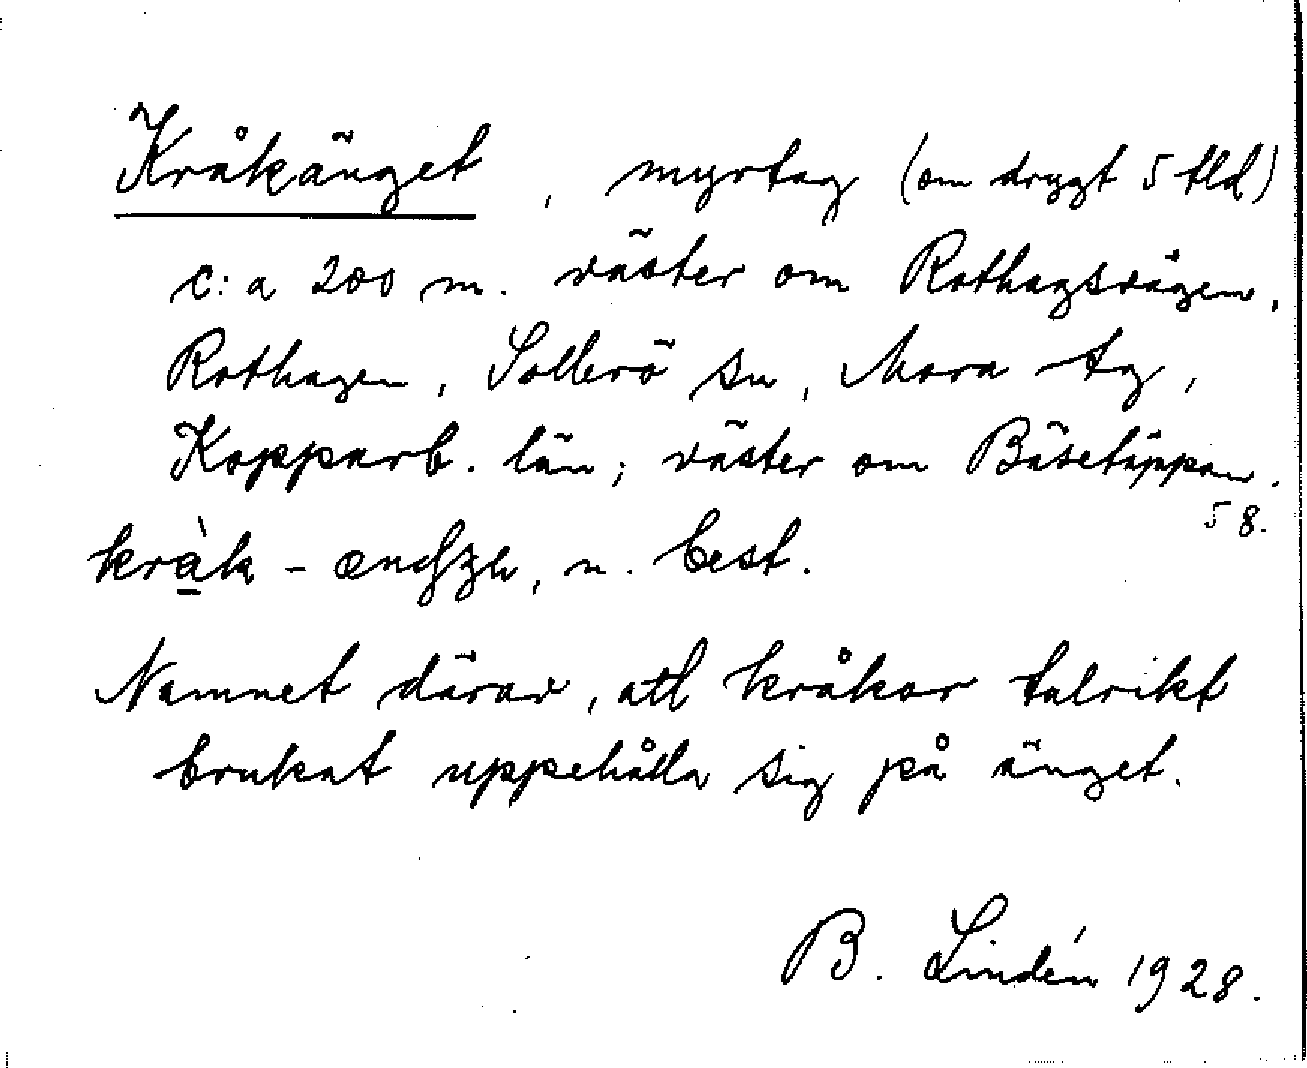 Kråkänget, myrtag (om drygt 5 tld)
c:a 200 m. väster om Rothagsvägen,
Rothagen, Sollerö sn, Mora tg,
Kopparb. län; väster om Bäsetäppan.
58.
kràk - , n. best.
Namnet därav, att kråkor talrikt
brukat uppehålla sig på änget.
B. Lindén 1928.